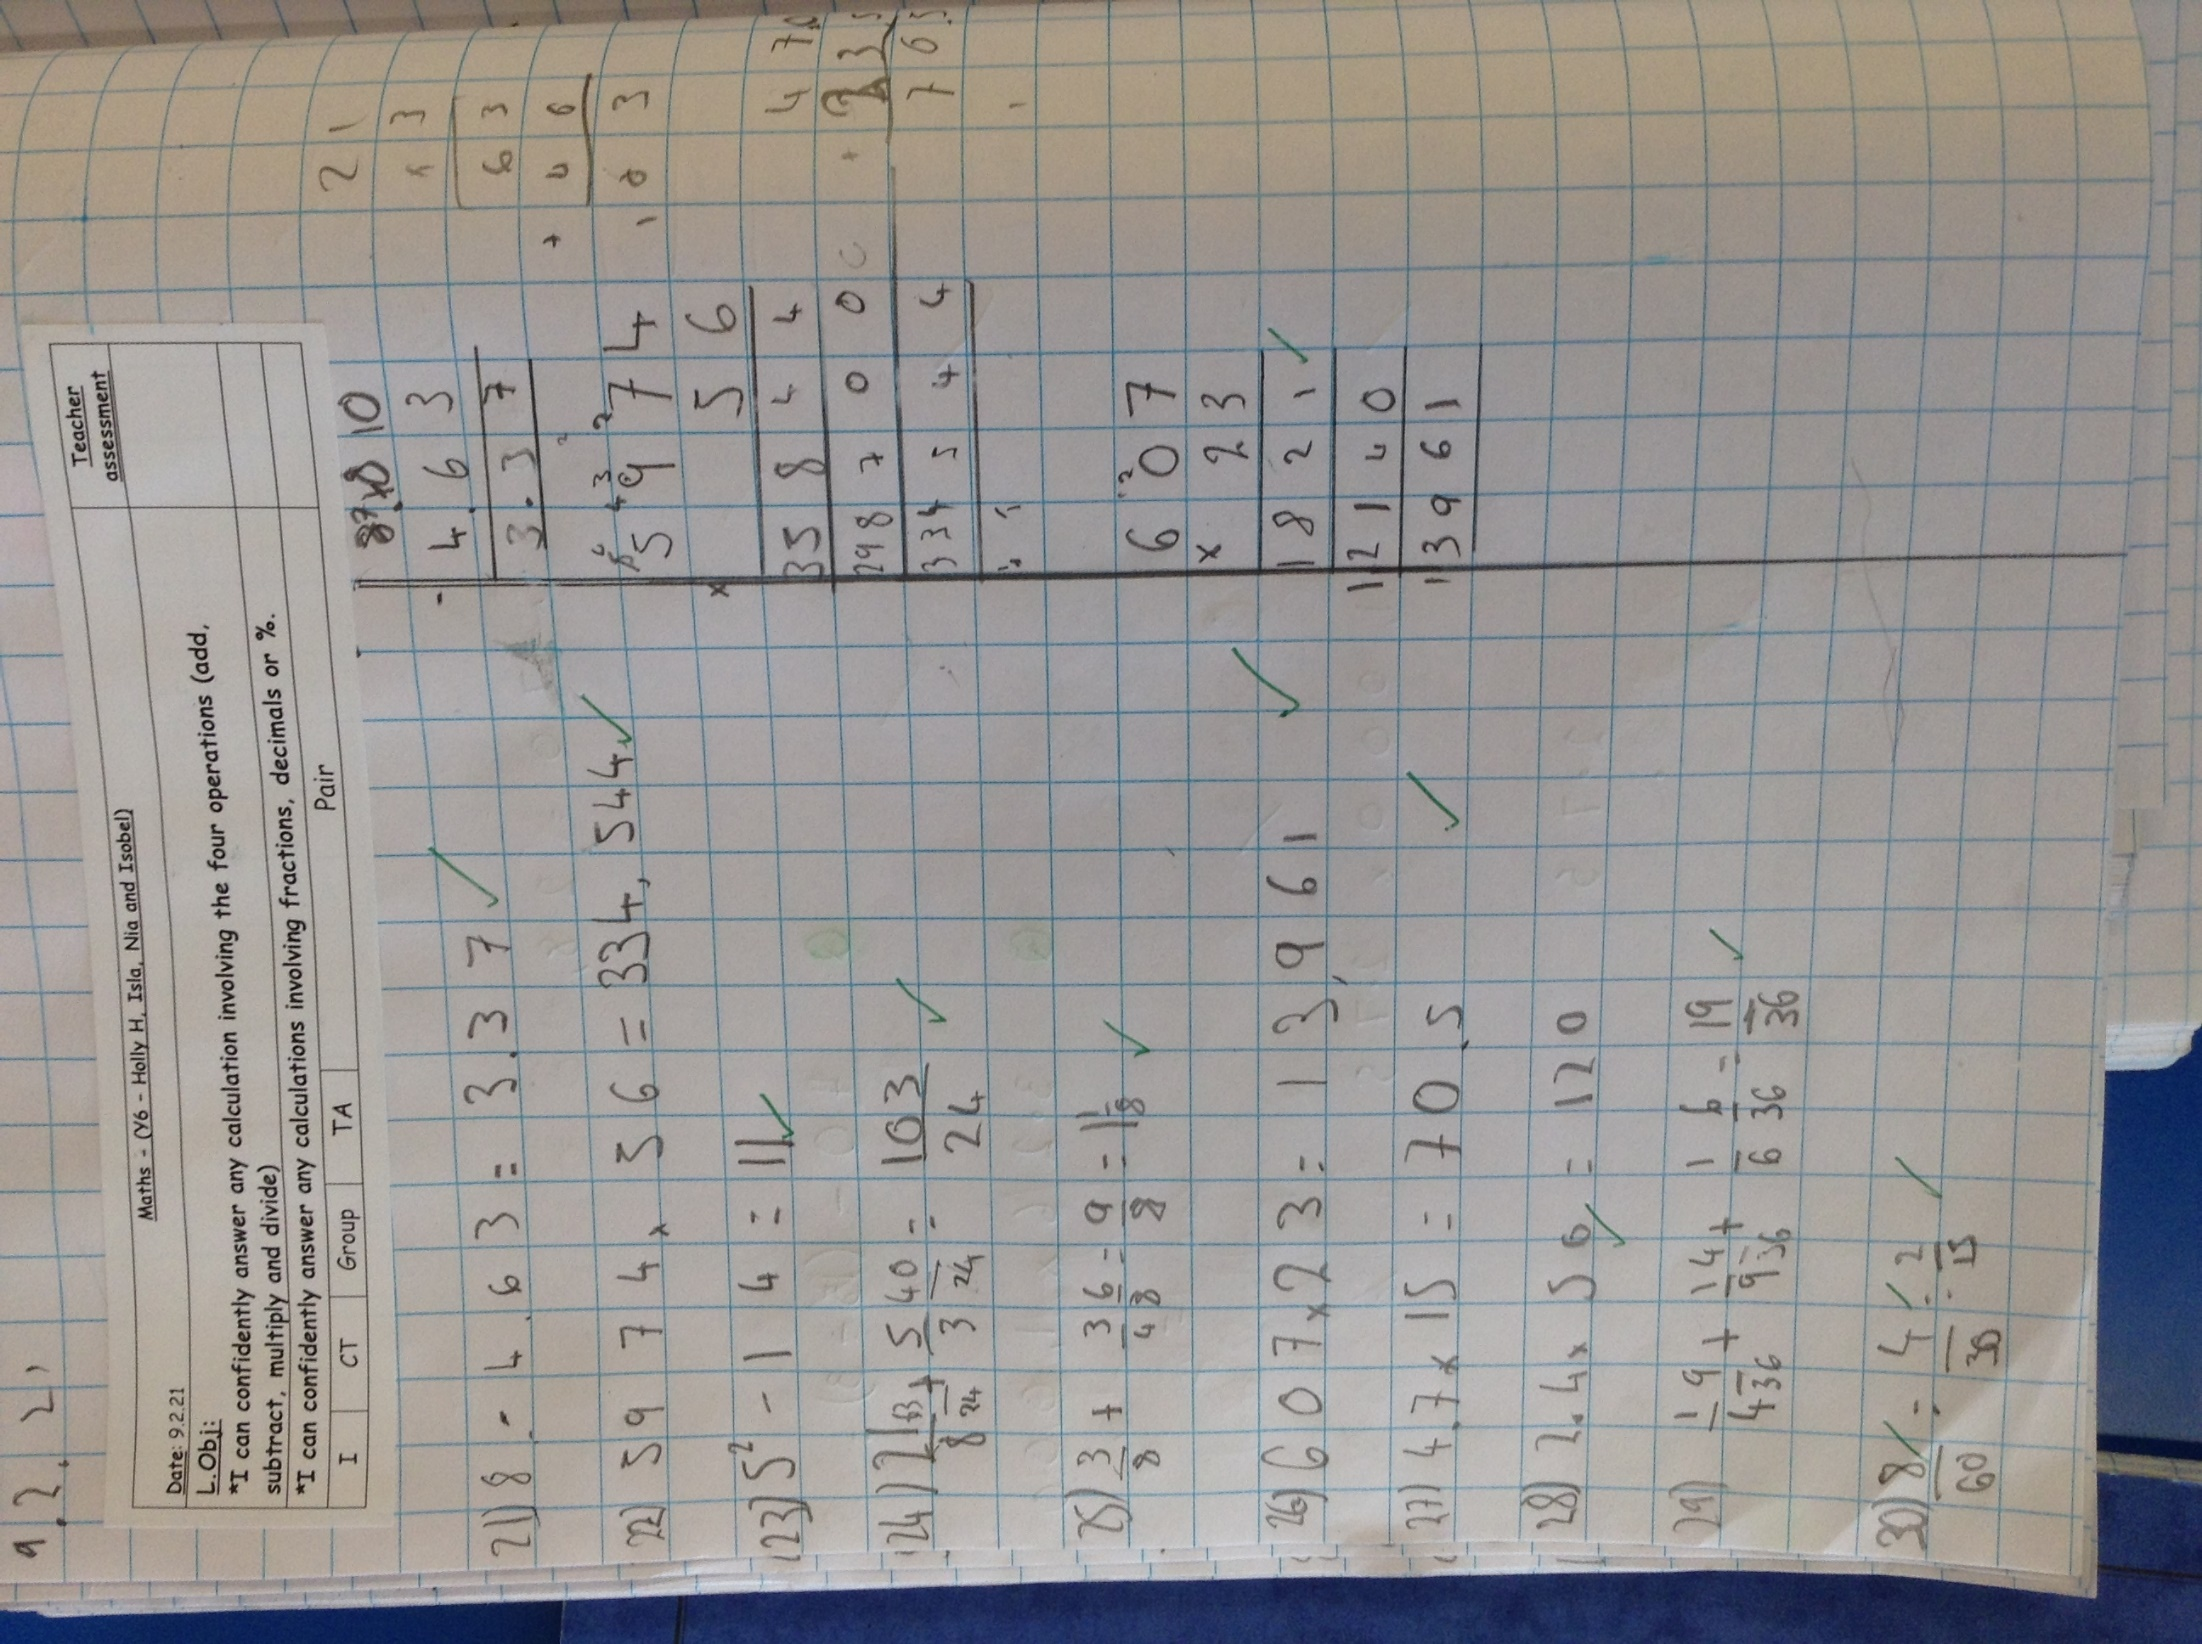 9.2.21
Maths - (Y6 - Holly H, Isla, Nia and Isobel)
Teacher assessment
Date: 9.2.21
L.Obj:
*I can confidently answer any calculation involving the four operations (add,
subtract, multiply and divide)
*I can confidently answer any calculations involving fractions, decimals or %.
I CT Group TA Pair
21) 8 - 4.63 = 3.37 ✓
22) 5974 x 56 = 334,544 ✓
23) 5² - 14 = 11 ✓
24) 2 1/8 63/24 + 5/3 40/24 = 103/24 ✓
25) 3/8 + 3/4 6/8 = 9/8 = 1 1/8 ✓
26) 607 x 23 = 13,961 ✓
27) 4.7 x 15 = 70.5 ✓
28) 2.4 x 50 = 120 ✓
29) 1/4 9/36 + 1/9 4/36 + 1/6 6/36 = 19/36 ✓
30) 8/60 = 4/30 = 2/15 ✓
10
- 4.63
3.37
5974
x 56
35844
298700
334544
607
x 23
1821 ✓
12140
13961
21
x 3
63